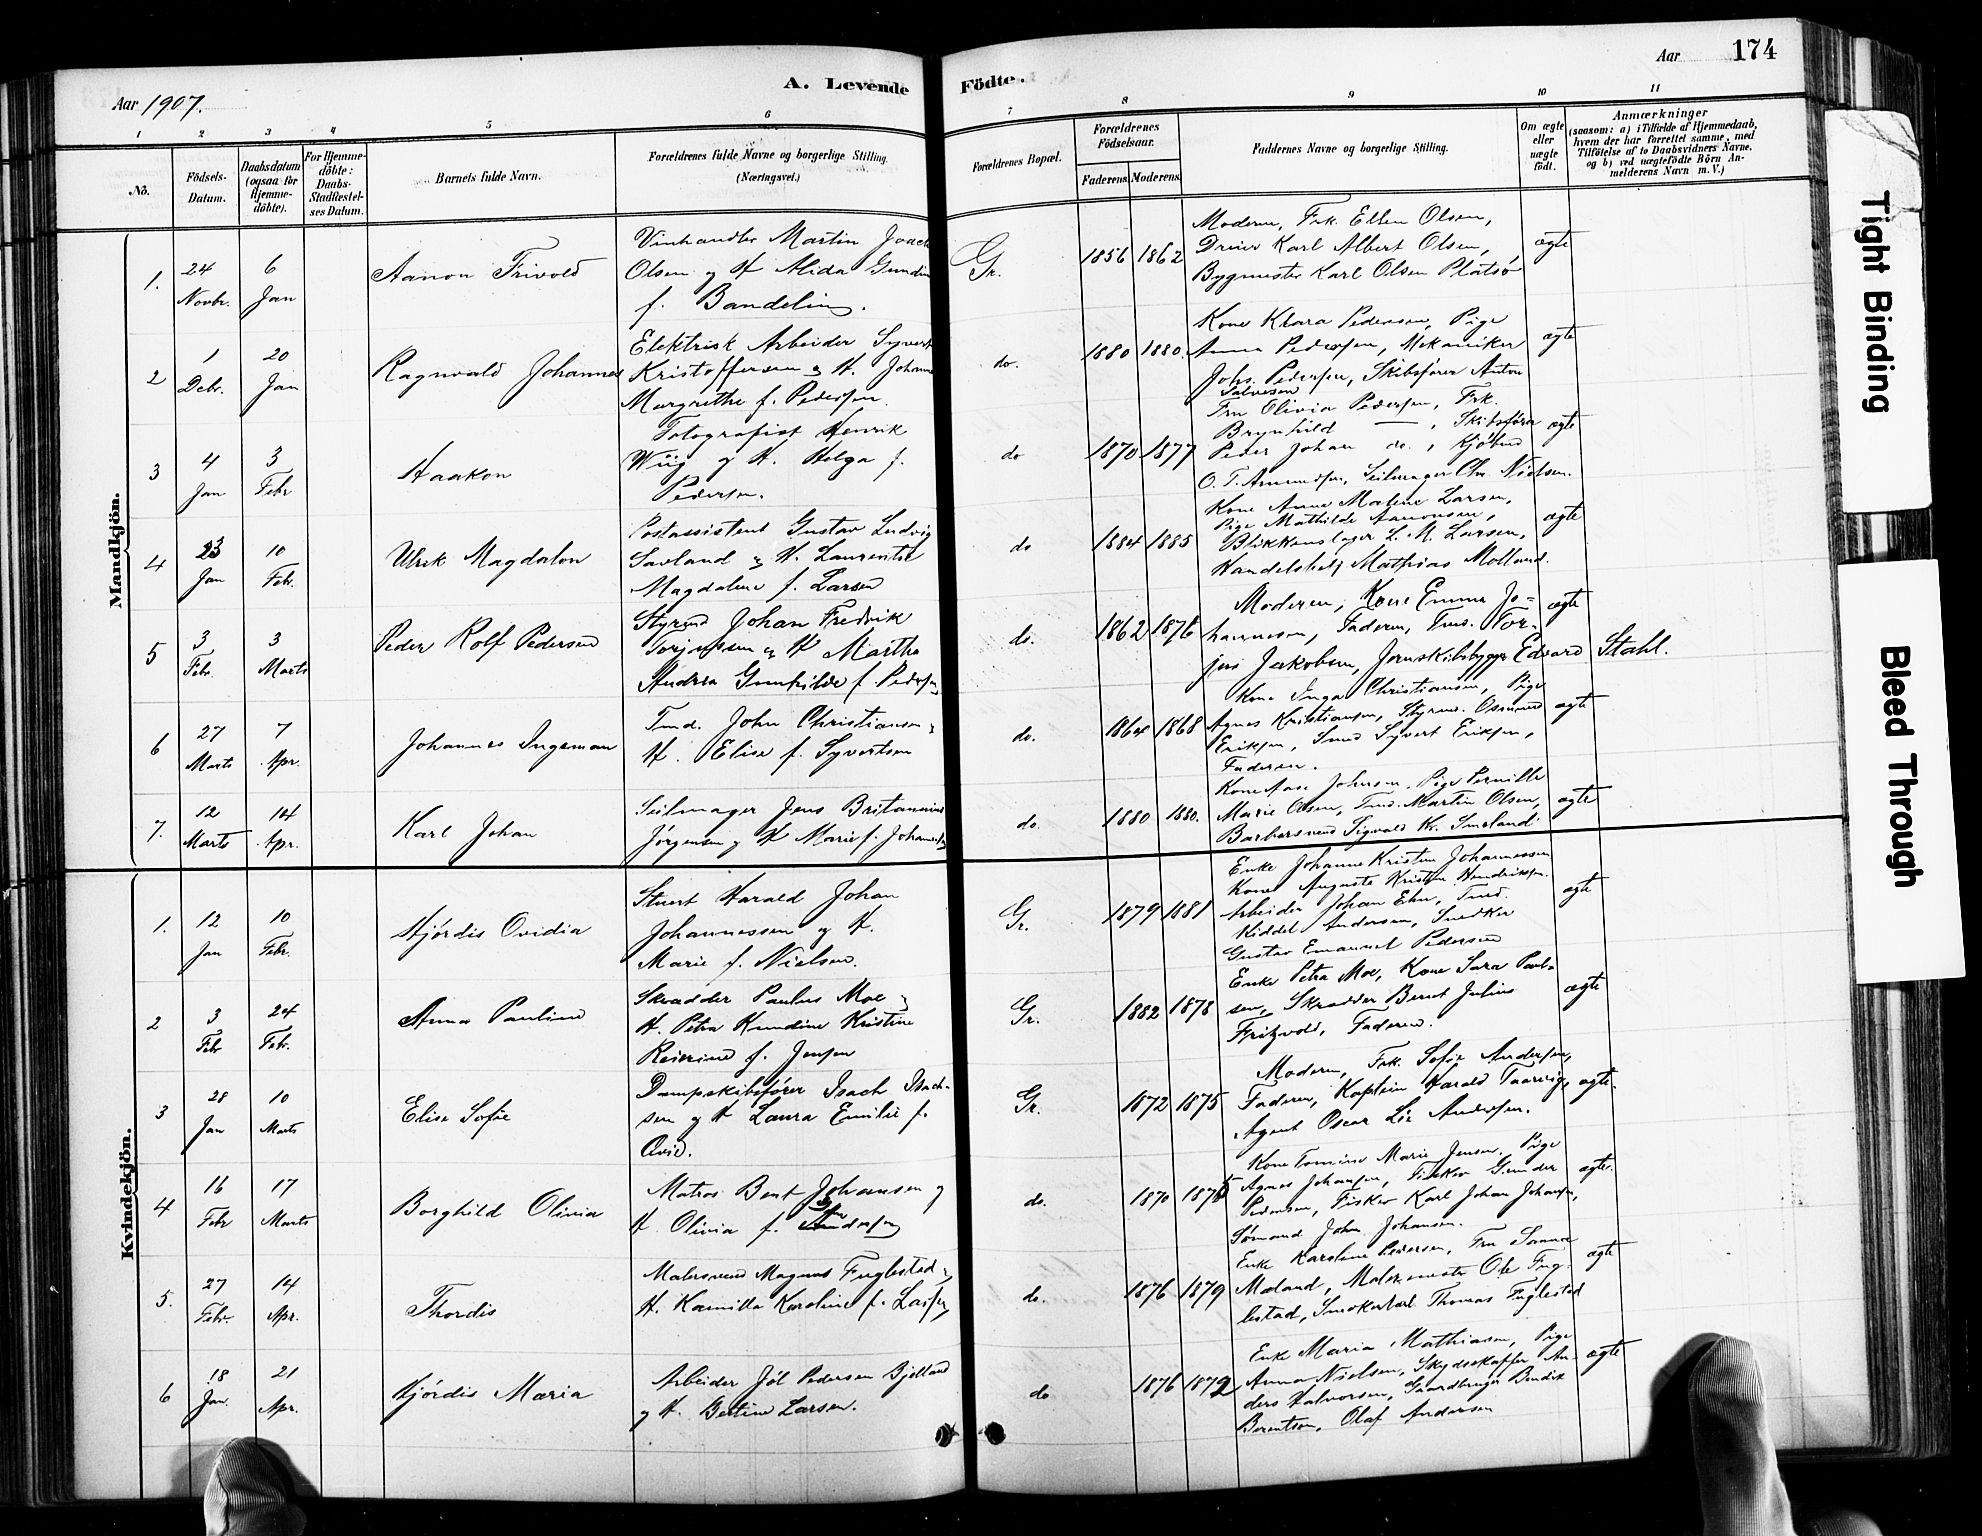 Aar 1907.
A. Levende
Födte.
Aar
174
1
2
3
4
5
6
7
8
9
10
11
No.
Födsels-
Datum.
Daabsdatum
(ogsaa for
Hjemme-
döbte).
For Hjemme-
döbte:
Daabs-
Stadfæstel-
ses Datum.
Barnets fulde Navn.
Forældrenes fulde Navne og borgerlige Stilling.
(Næringsvei.)
Forældrenes Bopæl.
Forældrenes
Födselsaar.
Faderens.
Moderens.
Faddernes Navne og borgerlige Stilling.
Om ægte
eller
uægte
födt.
Anmærkninger
(saasom: a) i Tilfælde af Hjemmedaab,
hvem der har forrettet samme, med
Tilföielse af to Daabsvidners Navne.
og b) ved uægtefödte Börn An-
melderens Navn m. V.)
Mandkjön.
1.
24
Novbr.
6
Jan
Aanon Trivold
Vinhandler Martin Joach
Olsen og H Alida Gundin
f. Bandelin.
Gr.
1856
1862
Moderen, Frk. Ellen Olsen,
Karl Albert Olsen,
Bygmester Karl Olsen Platsø
ægte
2
1
Debr.
20
Jan
Ragnvald Johannes
Elektrisk Arbeider Syvert
Kristoffersen og H. Johanne
Margrethe f. Pedersen.
do.
1880
1880.
Kone Klara Pedersen, Pige
Anna Pedersen, Mekaniker
Johs. Pedersen, Skibsfører Anton
Salvesen
ægte
3
4
Jan
3
Febr
Haakon
Fotografist Henrik
Wiig og H. Helga f.
Pedersen.
do
1870
1877
Fru Olivia Pedersen, Frk.
Brynhild — , Skibsfører
Peder Johan do., Kjøbmd
O. T. Amundsen, Seilmager Chr. Nielsen.
ægte
4
23
Jan
10
Feb.
Ulrik Magdalon
Postassistent Gustav Ludvig
Savland og H. Laurentse
Magdalene f. Larsen
do
1884
1885
Kone Anne Malene Larsen,
Pige Mathilde Aanonsen,
Blikkenslager L. M. Larsen,
Handelsbetj Mathias Molland.
ægte
5
3
Feb.
3
Marts
Peder Rolf Pedersen
Styrmd Johan Fredrik
Torjussen og H Marthe
Andrea Gunhilde f. Pedersen
do.
1862
1876
Moderen, Kone Emma Jo-
hannesen, Faderen, Tmd. Tor-
jus Jakobsen, Jernskibsbygger Edvard Stahl.
ægte
6
27
Marts
7
Apr.
Johannes Ingeman
Tmd. John Christiansen og
H. Elise f. Syvertsen
do.
1864
1868
Kone Inga Christiansen, Pige
Agnes Kristiansen, Styrmd. Osmund
Eriksen, Smed Syvert Eriksen,
Faderen.
ægte
7.
12
Marts
14
Apr.
Karl Johan
Seilmager Jens Britannius
Jørgensen og H Marie f. Johannesen
do.
1880
1880.
Kone Aase Johnsen, Pige Pernille
Marie Olsen, Tmd. Martin Olsen,
Barbersvend Sigvald Kr. Smeland
ægte
Kvindekjön.
1.
12
Jan
10
Febr.
Hjørdis Ovidia
Stuert Harald Johan
Johannessen og H.
Marie f. Nielsen.
Gr.
1879
1881
Enke Johanne Kristine Johannessen
Kone Augusta Kristine Hendriksen.
Arbeider Johan Ehn, Tmd.
Kiddel Andersen, Snedker
Gustav Emanuel Pedersen
ægte
2
3
Febr
24
Feb.
Anna Pauline
Skrædder Paulus Moe og
H. Petra Kundine Kristine
Reierine f. Jensen
Gr.
1882
1878
Enke Petra Moe, Kone Sara Paul-
sen, Skrædder Bernt Julius
Fritzvold, Faderen.
ægte
3
28
Jan
10
Marts
Elise Sofie
Dampskibsfører Isach Isach-
sen og H Laura Emilie f.
Qvie.
Gr.
1872
1875
Moderen, Frk. Sofie Andersen,
Faderen, Kaptein Harald Taarvig,
Agent Oscar Andersen.
ægte.
4
16
Febr
17
Marts
Borghild Olivia
Matros Bent Johansen og
H. Olivia f.
do.
1870
1875
Kone Tomine Marie Jensen, Pige
Agnes Johansen, Fisker Gunder
Pedersen, Fisker Karl Johan Johansen,
Sømand John Johansen.
ægte.
5.
27
Febr.
14
Apr.
Thordis
Malersvend Magnus Fuglestad og
H. Kamilla Karoline f. Larsen
do.
1876
1879
Enke Karoline Pedersen, Fru Sanna
Moland, Malermester Ole Fug-
lestad, Snedkerlærl. Thomas Fuglestad
ægte
6
18
Jan.
21
Apr.
Hjørdis Maria
Arbeider Jöl Pedersen Bjelland
og H. Bertine Larsen.
do
1876
1872
Enke Maria Mathiasen, Pige
Anna Nielsen, Skydsskaffer An-
ders Halvorsen, Gaardbruger Bendik
Berentsen, Olaf Andersen
ægte
Tight Binding
Bleed Through